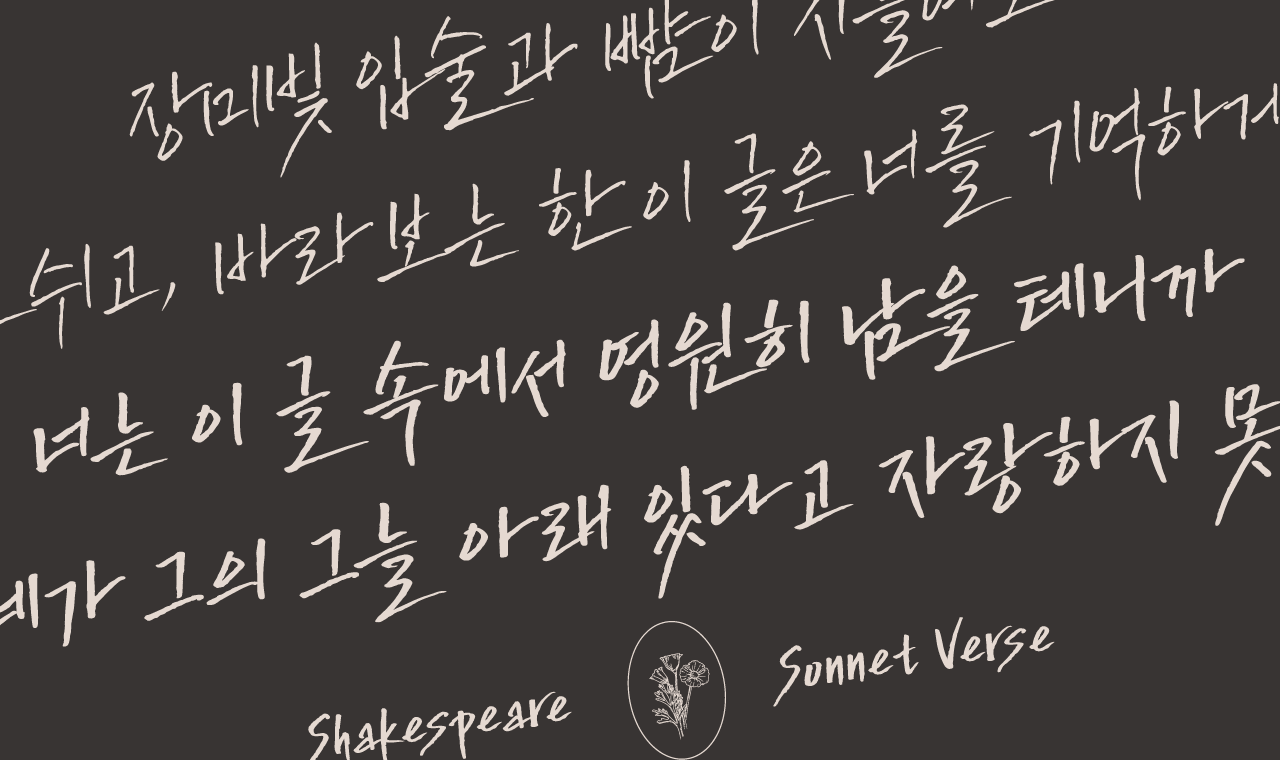 장미빛 입술과 뺨이 시들어도
쉬고, 바라보는 한 이 글은 너를 기억하게
너는 이 글 속에서 영원히 남을 테니까
네가 그의 그늘 아래 있다고 자랑하지 못
Shakespeare Sonnet Verse